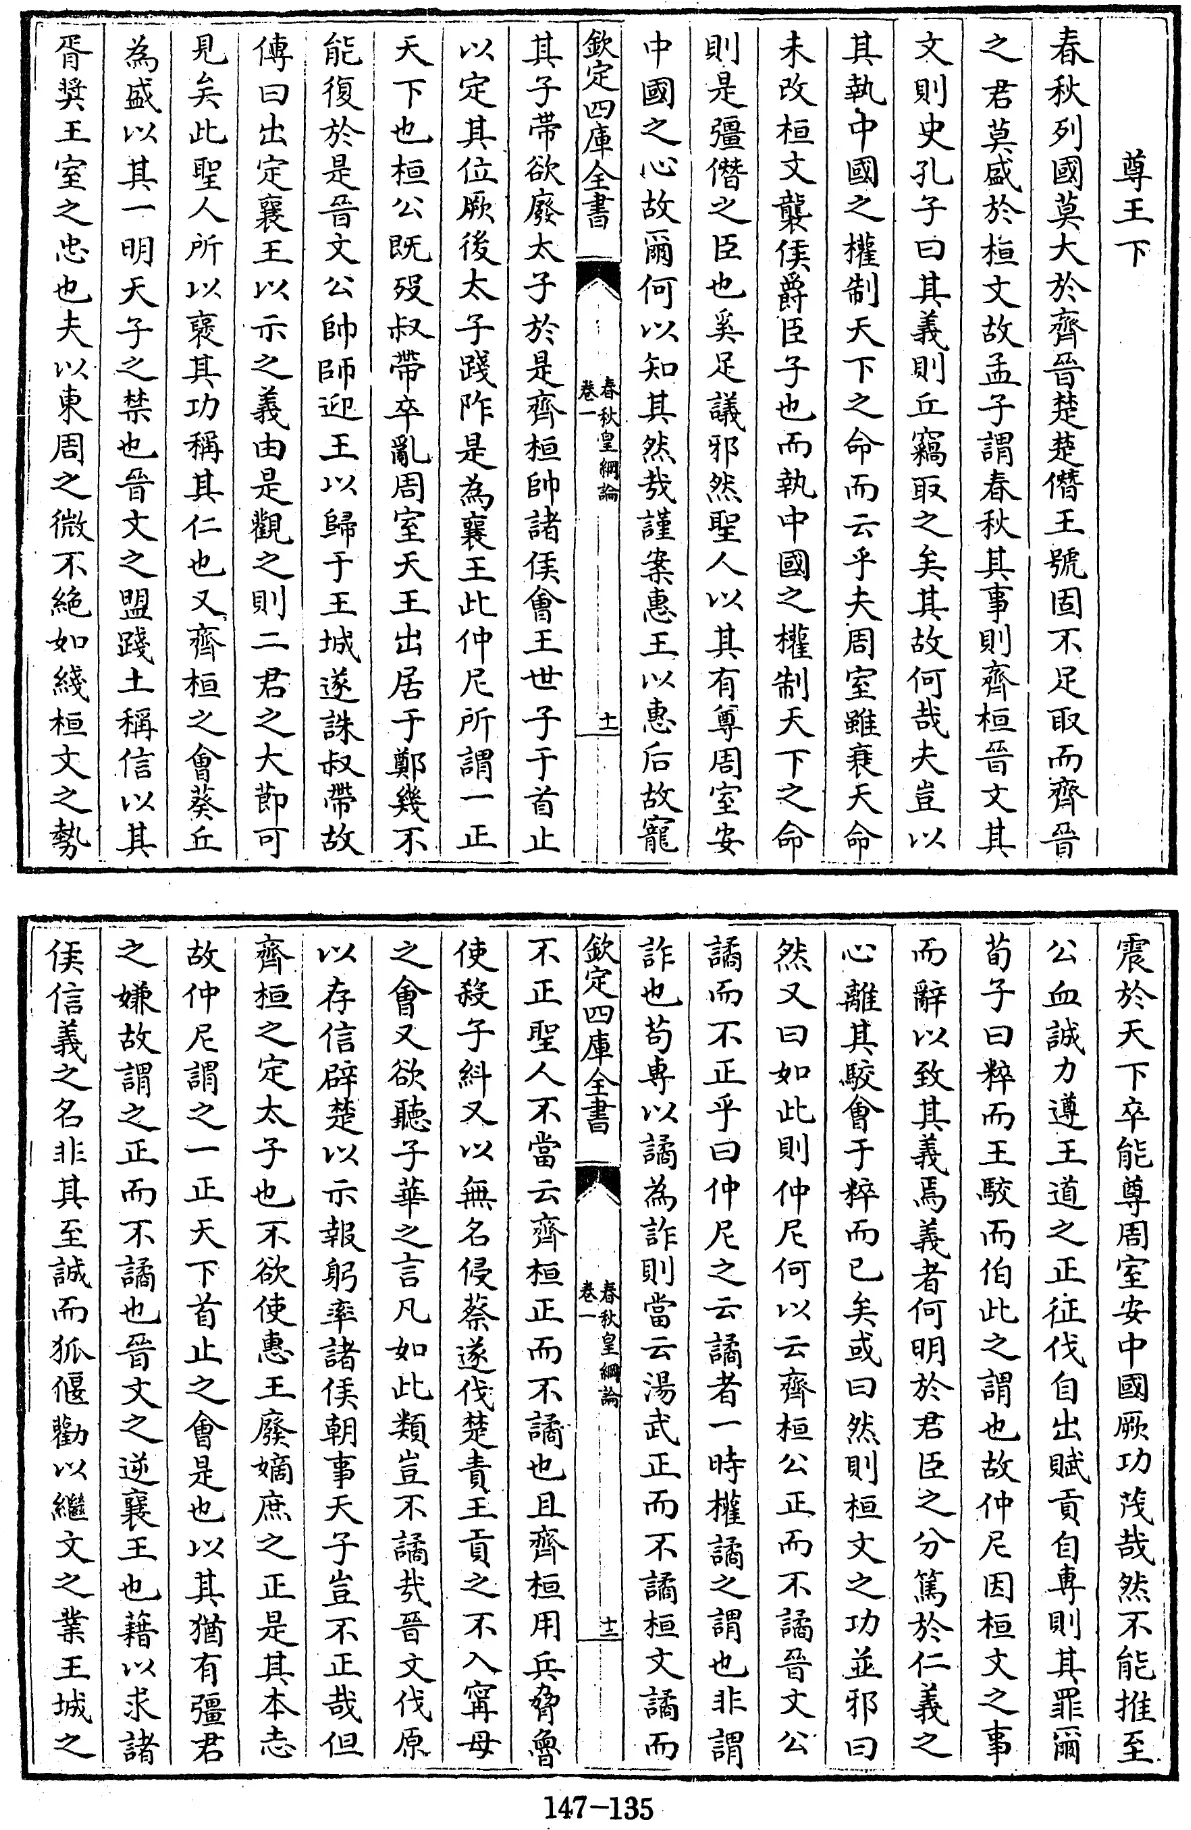 尊王下
春秋列國莫大於齊晉楚楚僭王號固不足取而齊晉
之君莫盛於桓文故孟子謂春秋其事則齊桓晉文其
文則史孔子曰其義則丘竊取之矣其故何哉夫豈以
其執中國之權制天下之命而云乎夫周室雖衰天命
未改桓文襲侯爵臣子也而執中國之權制天下之命
則是彊僭之臣也奚足議邪然聖人以其有尊周室安
中國之心故爾何以知其然哉謹案惠王以惠后故寵
欽定四庫全書
春秋皇綱論
卷一
十一
其子帶欲廢太子於是齊桓帥諸侯會王世子于首止
以定其位厥後太子踐阼是為襄王此仲尼所謂一正
天下也桓公既歿叔帶卒亂周室天王出居于鄭幾不
能復於是晉文公帥師迎王以歸于王城遂誅叔帶故
傳曰出定襄王以示之義由是觀之則二君之大節可
見矣此聖人所以褒其功稱其仁也又齊桓之會葵丘
為盛以其一明天子之禁也晉文之盟踐土稱信以其
胥奬王室之忠也夫以東周之微不絕如綫桓文之勢
震於天下卒能尊周室安中國厥功茂哉然不能推至
公血誠力遵王道之正征伐自出賦貢自專則其罪爾
荀子曰粹而王駮而伯此之謂也故仲尼因桓文之事
而辭以致其義焉義者何明於君臣之分篤於仁義之
心離其駮會于粹而已矣或曰然則桓文之功並邪曰
然又曰如此則仲尼何以云齊桓公正而不譎晉文公
譎而不正乎曰仲尼之云譎者一時權譎之謂也非謂
詐也苟專以譎為詐則當云湯武正而不譎桓文譎而
欽定四庫全書
春秋皇綱論
卷一
十二
不正聖人不當云齊桓正而不譎也且齊桓用兵脅魯
使殺子糾又以無名侵蔡遂伐楚責王貢之不入甯母
之會又欲聽子華之言凡如此類豈不譎哉晉文伐原
以存信辟楚以示報躬率諸侯朝事天子豈不正哉但
齊桓之定太子也不欲使惠王廢嫡庶之正是其本志
故仲尼謂之一正天下首止之會是也以其猶有彊君
之嫌故謂之正而不譎也晉文之逆襄王也藉以求諸
侯信義之名非其至誠而狐偃勸以繼文之業王城之
147-135